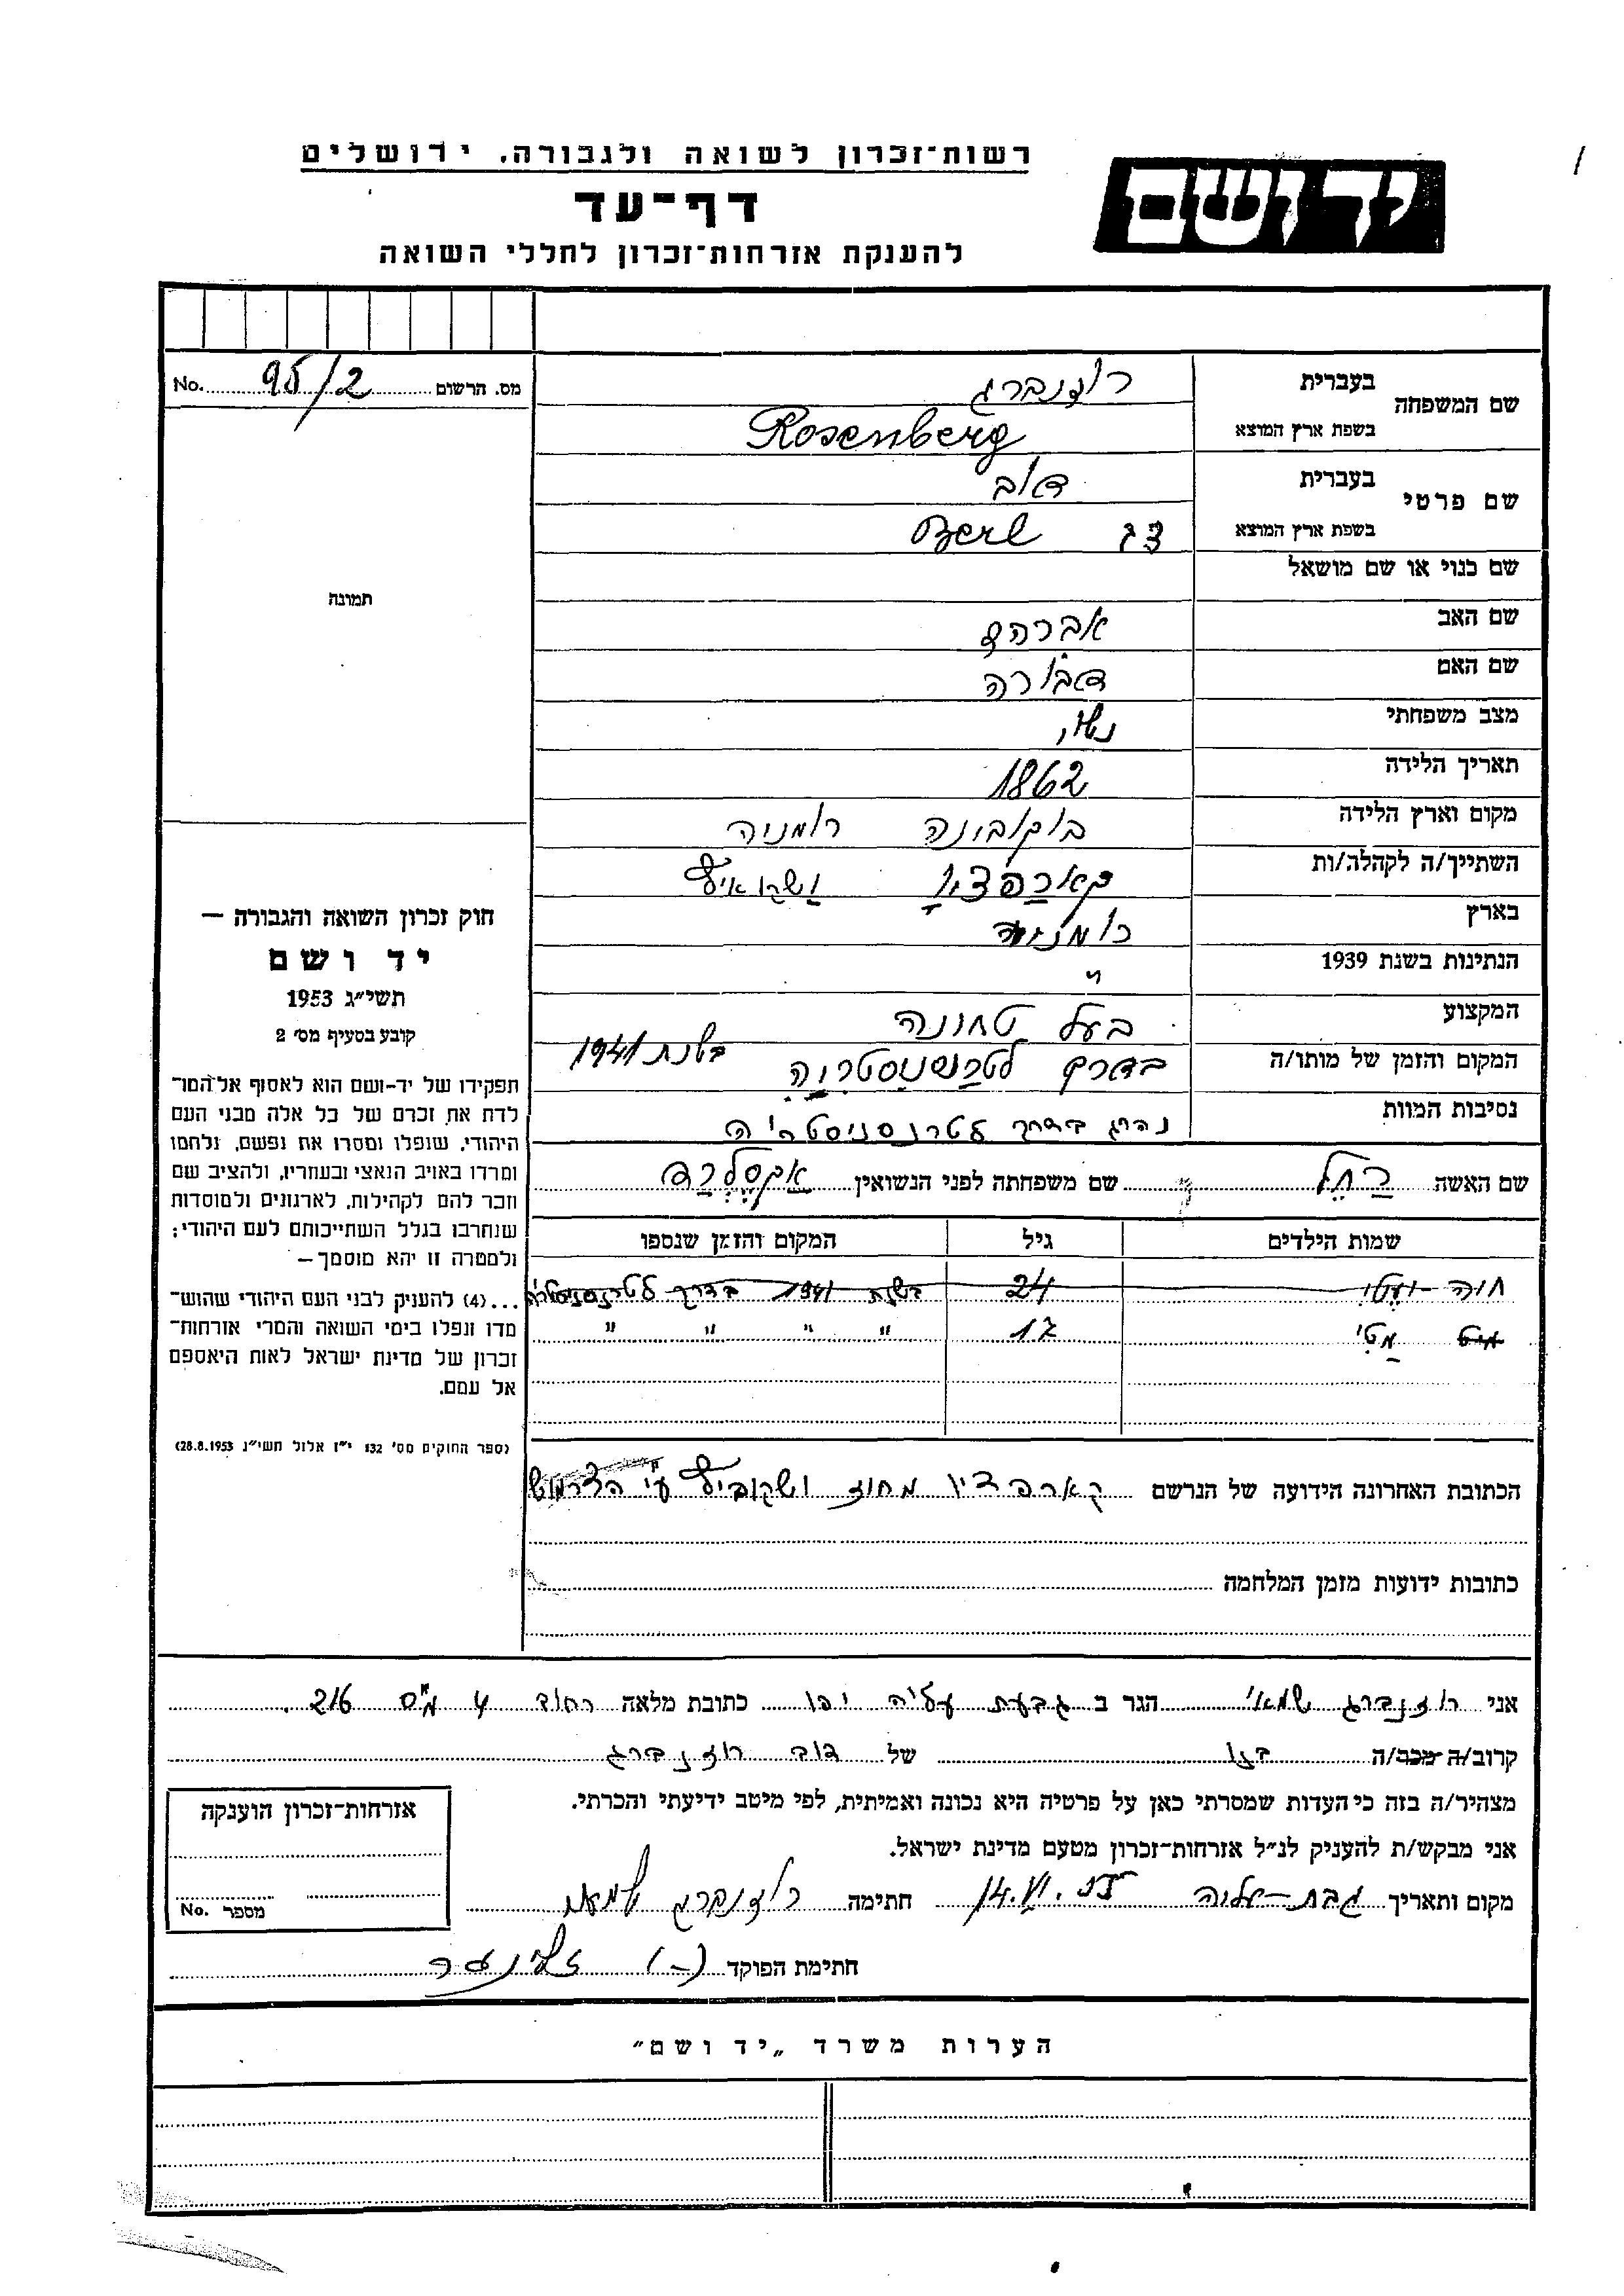 רשות־זכרון לשואה ולגבורה, ירושלים
יד ושם
דף־עד
להענקת אזרחות־זכרון לחללי השואה
מס. הרשום 95/2 No.
שם המשפחה
בעברית רוזנברג
בשפת ארץ המוצא Rosenberg
שם פרטי
בעברית דוב
בשפת ארץ המוצא Berl
שם כנוי או שם מושאל
שם האב אברהם
שם האם דבורה
מצב משפחתי נשוי
תאריך הלידה 1862
מקום וארץ הלידה בוקובינה רומניה
השתייך/ה לקהלה/ות
בארץ רומניה
הנתינות בשנת 1939 "
המקצוע בעל טחונה
המקום והזמן של מותו/ה בדרך לטרנשניסטריה בשנת 1941
נסיבות המוות נהרג בדרך לטרנסניסטריה
שם האשה רחל שם משפחתה לפני הנשואין
שמות הילדים גיל המקום והזמן שנספו
חוה 24 בשנת 1941 בדרך לטרנסניסטריה
מטי 17 " " " "
הכתובת האחרונה הידועה של הנרשם
כתובות ידועות מזמן המלחמה
תמונה
חוק זכרון השואה והגבורה —
יד ושם
תשי״ג 1953
קובע בסעיף מס׳ 2
תפקידו של יד-ושם הוא לאסוף אל המו־
לדת את זכרם של כל אלה מבני העם
היהודי, שנפלו ומסרו את נפשם, נלחמו
ומרדו באויב הנאצי ובעוזריו, ולהציב שם
וזכר להם לקהילות, לארגונים ולמוסדות
שנחרבו בגלל השתייכותם לעם היהודי;
ולמטרה זו יהא מוסמך —
...(4) להענק לבני העם היהודי שהוש־
מדו ונפלו בימי השואה והמרי אזרחות־
זכרון של מדינת ישראל לאות היאספם
אל עמם.
(ספר החוקים מס׳ 132 י״ז אלול תשי״ג 28.8.1953)
אני רוזנברג שמאי הגר ב גבעת עליה יפו כתובת מלאה רחוב 4 מס 216
קרוב/ה מכר/ה בנו של דוב רוזנברג
מצהיר/ה בזה כי העדות שמסרתי כאן על פרטיה היא נכונה ואמיתית, לפי מיטב ידיעתי והכרתי.
אני מבקש/ת להעניק לנ״ל אזרחות־זכרון מטעם מדינת ישראל.
מקום ותאריך חתימה רוזנברג שמאי
חתימת הפוקד
אזרחות־זכרון הוענקה
מספר No.
הערות משרד „יד ושם״